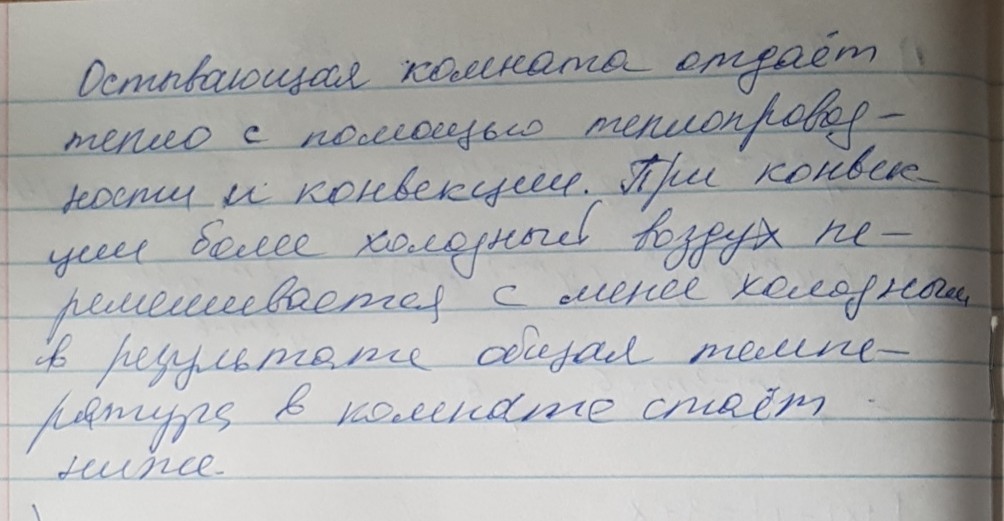 Остывающая комната отдаёт
тепло с помощью теплопровод-
ности и конвекции. При конвек-
ции более холодный воздух пе-
ремешивается с менее холодным,
в результате общая темпе-
ратура в комнате стаёт
ниже.